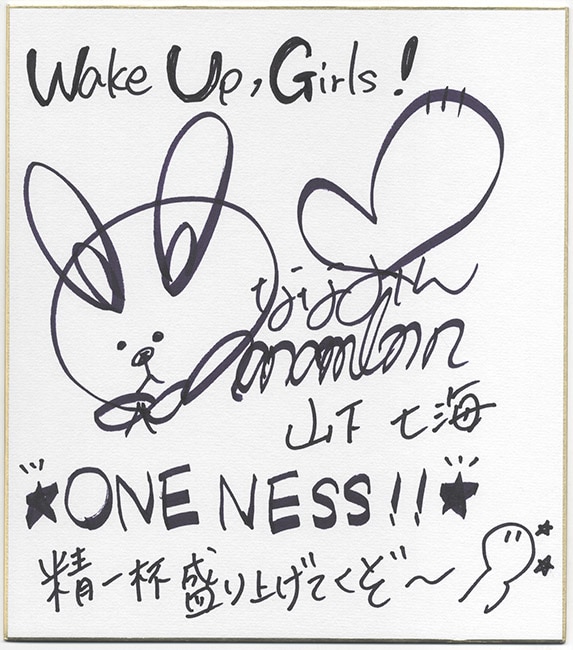 Wake Up, Girls!
ななみん
nanamin
山下七海
★ONENESS!!★
精一杯盛り上げてくぞ〜